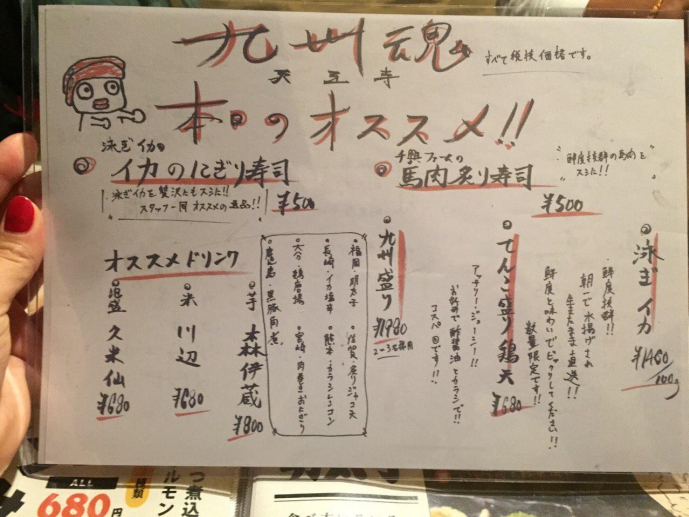 九州魂
天王寺
すべて税抜価格です。
本日のオススメ!!
泳ぎイカの
イカのにぎり寿司
泳ぎイカを贅沢にもスシに!!
スタッフ一同オススメの逸品!!
¥500
千興ファームの
馬肉炙り寿司
鮮度抜群の馬肉を
スシに!!
¥500
泳ぎイカ
・鮮度抜群!!
朝一で水揚げされ
生きたまま直送!!
¥1480/100g
てんこ盛り鶏天
鮮度と味わいでビックリしてください!!
数量限定です!!
¥680
アッツアツ・ジューシー!!
お好みで酢醤油とカラシで!!
コスパ◎です!!
九州盛り
¥1980
2〜3名様用
・福岡・明太子
・佐賀・炙りジャコ天
・長崎・イカ塩辛
・熊本・カラシレンコン
・大分・鶏唐揚
・宮崎・肉巻きおにぎり
・鹿児島・黒豚角煮
オススメドリンク
芋
森伊蔵
¥800
米
川辺
¥680
泡盛
久米仙
¥680
ALL
680円
つ煮込
ルモン